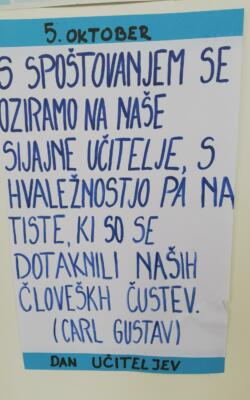 5. OKTOBER
S SPOŠTOVANJEM SE
OZIRAMO NA NAŠE
SIJAJNE UČITELJE, S
HVALEŽNOSTJO PA NA
TISTE, KI SO SE
DOTAKNILI NAŠIH
ČLOVEŠKH ČUSTEV.
(CARL GUSTAV)
DAN UČITELJEV